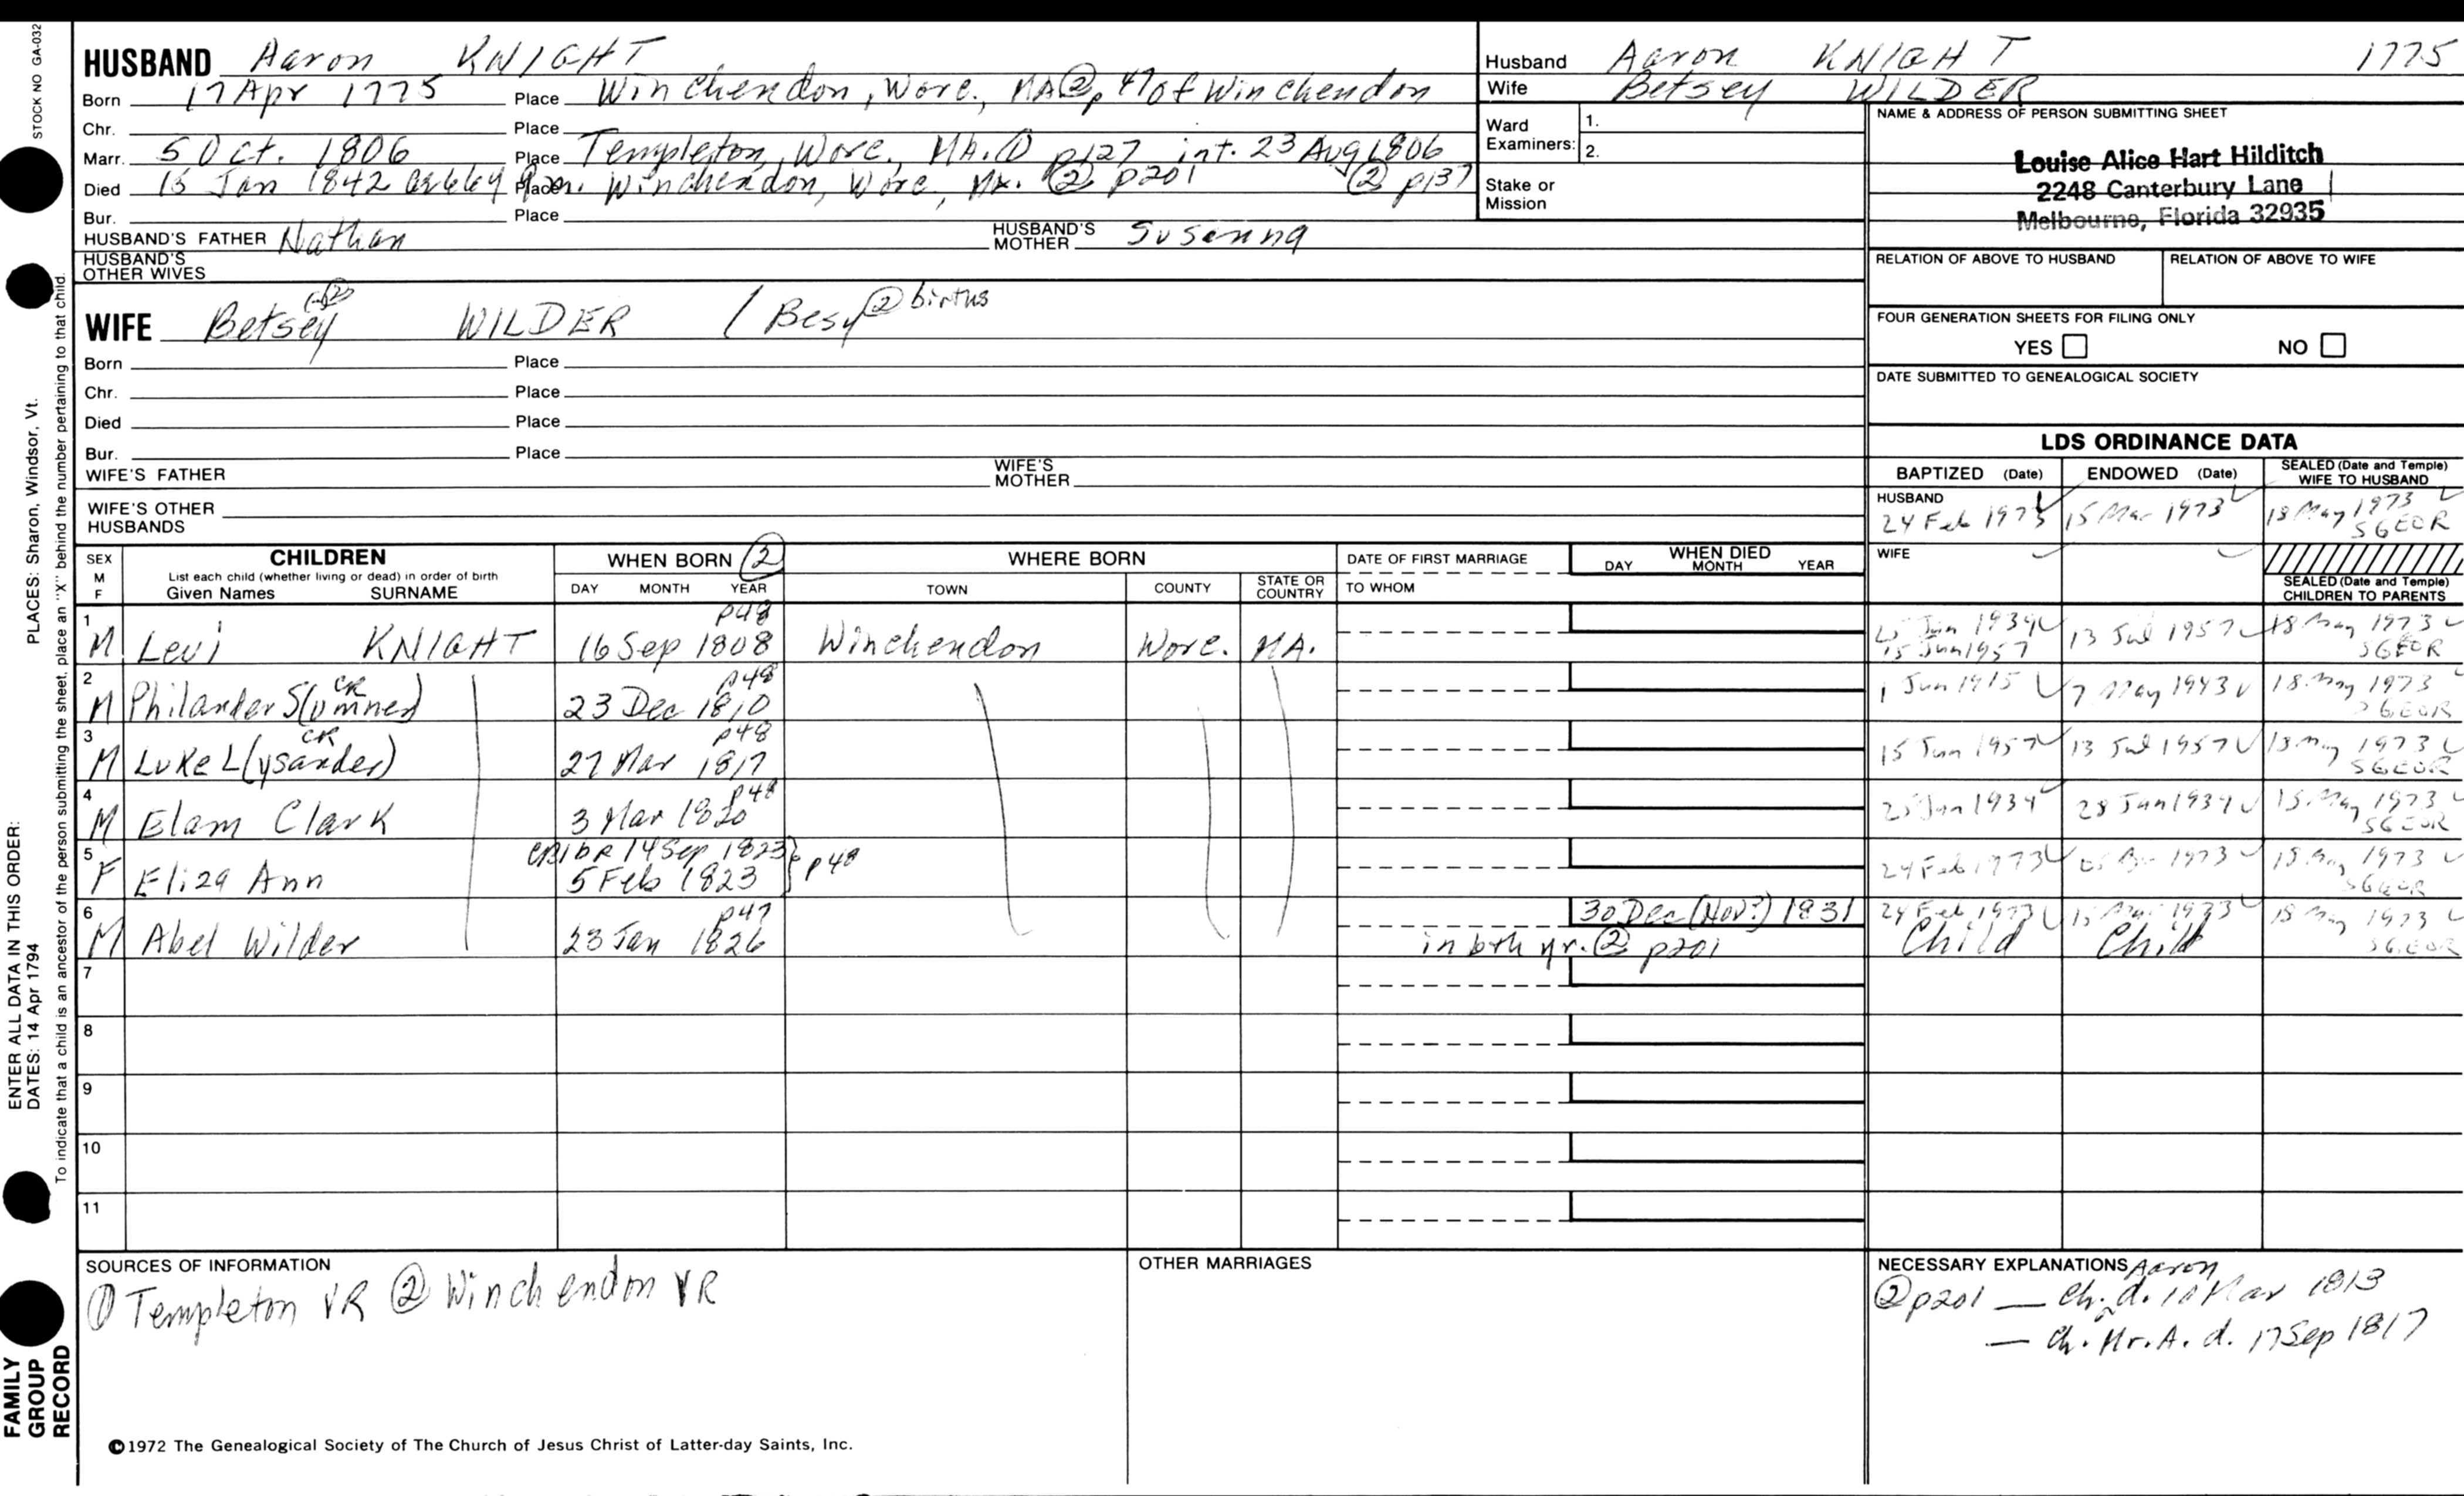 HUSBAND Aaron KNIGHT
Born 17 Apr 1775 Place Winchendon, Worc., MA ② p 47 of Winchendon
Chr. Place
Marr. 5 Oct. 1806 Place Templeton, Worc., MA. ① p127 int. 23 Aug 1806
Died 15 Jan 1842 Place Winchendon, Worc., MA. ② p201 ② p137
Bur. Place
HUSBAND'S FATHER Nathan HUSBAND'S MOTHER Susanna
HUSBAND'S OTHER WIVES
WIFE Betsey WILDER / Besy ② births
Born Place
Chr. Place
Died Place
Bur. Place
WIFE'S FATHER WIFE'S MOTHER
WIFE'S OTHER HUSBANDS
Husband Aaron KNIGHT 1775
Wife Betsey WILDER
Ward Examiners: 1.
2.
Stake or Mission
NAME & ADDRESS OF PERSON SUBMITTING SHEET
Louise Alice Hart Hilditch
2248 Canterbury Lane
Melbourne, Florida 32935
RELATION OF ABOVE TO HUSBAND RELATION OF ABOVE TO WIFE
FOUR GENERATION SHEETS FOR FILING ONLY
YES NO
DATE SUBMITTED TO GENEALOGICAL SOCIETY
LDS ORDINANCE DATA
BAPTIZED (Date) ENDOWED (Date) SEALED (Date and Temple) WIFE TO HUSBAND
HUSBAND
24 Feb 1973 15 Mar 1973 18 May 1973 SGEOR
WIFE
SEALED (Date and Temple) CHILDREN TO PARENTS
SEX M F CHILDREN WHEN BORN ② WHERE BORN DATE OF FIRST MARRIAGE WHEN DIED
List each child (whether living or dead) in order of birth
Given Names SURNAME DAY MONTH YEAR TOWN COUNTY STATE OR COUNTRY TO WHOM DAY MONTH YEAR
p48
1 M Levi KNIGHT 16 Sep 1808 Winchendon Worc. MA. Jun 1934 15 Jun 1957 13 Jul 1957 18 May 1973 SGEOR
CR p48
2 M Philander S(umner) 23 Dec 1810 1 Jun 1915 7 May 1943 18 May 1973 SGEOR
CR p48
3 M Luke L(ysander) 27 Mar 1817 15 Jun 1957 13 Jul 1957 18 May 1973 SGEOR
p48
4 M Elam Clark 3 Mar 1820 25 Jan 1934 28 Jun 1934 18 May 1973 SGEOR
14 Sep 1823
5 F Eliza Ann 5 Feb 1823 } p48 24 Feb 1973 1973 18 May 1973 SGEOR
p47 30 Dec (Nov?) 1831 24 Feb 1973 15 Mar 1973 18 May 1973 SGEOR
6 M Abel Wilder 23 Jan 1826 in bth yr. ② p201 Child Child
7
8
9
10
11
SOURCES OF INFORMATION
① Templeton VR ② Winchendon VR
OTHER MARRIAGES
NECESSARY EXPLANATIONS Aaron
② p201 — Ch. d. 10 Mar 1813
— Ch. Mr. A. d. 17 Sep 1817
©1972 The Genealogical Society of The Church of Jesus Christ of Latter-day Saints, Inc.
STOCK NO GA-032
PLACES: Sharon, Windsor, Vt.
ENTER ALL DATA IN THIS ORDER:
DATES: 14 Apr 1794
To indicate that a child is an ancestor of the person submitting the sheet, place an "X" behind the number pertaining to that child.
FAMILY
GROUP
RECORD